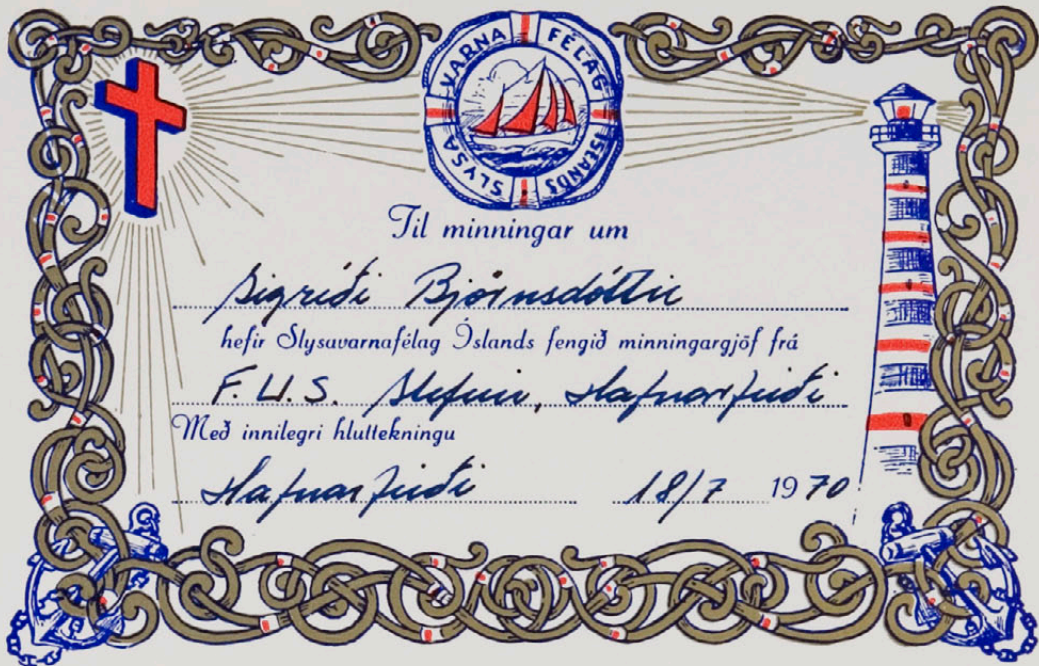 SLYSA VARNA FÉLAG ÍSLANDS
Til minningar um
Sigríði Björnsdóttir
hefir Slysavarnafélag Íslands fengið minningargjöf frá
F.U.S. Stefnir, Hafnarfirði
Með innilegri hluttekningu
Hafnarfirði 18/7 1970